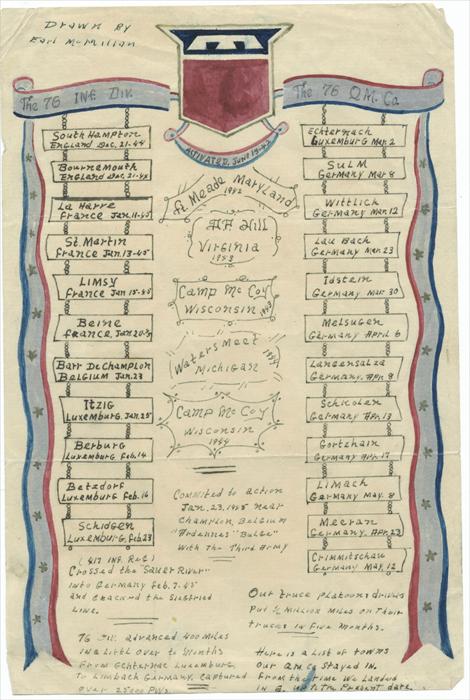 Drawn By
Earl McMillan
The 76 INF. Div.
The 76 Q.M. Co.
ACTIVATED, June 15-42
SouthHampton
ENGLAND Dec. 21-44
Bournemouth
ENGLAND Dec. 21-44
La Harre
France Jan. 11-45
St. Martin
France Jan. 13-45
Limsy
France Jan 15-45
Beine
France, Jan 20
Barr De Champlon
Belgium Jan. 23
Itzig
Luxemburg. Jan. 25
Berburg
Luxemburg Feb. 14
Betzdorf
Luxemburg Feb. 16
Schidgen
Luxemburg, Feb 23
Ft. Meade Maryland
1942
AP Hill
Virginia
1943
Camp McCoy
Wisconsin 1943
Waters Meet
Michigan 1944
Camp McCoy
Wisconsin
1944
Echternach
Luxemburg Mar. 2
Sulm
Germany Mar 8
Wittlich
Germany Mar. 12
Lau Bach
Germany Mar. 23
Idstein
Germany Mar. 30
Melsugen
Germany April 6
Langensalza
Germany. Apr. 8
Schkolen
Germany Apr. 13
Gortzhain
Germany Apr. 17
Limach
Germany May. 8
Meeran
Germany, Apr. 22
Crimmitschau
Germany May, 12
Committed to action
Jan. 23, 1945 near
Champlon, Belgium
"Ardennes" "Bulge"
With The Third Army
(417 INF. Reg)
Crossed the "Sauer River"
Into Germany Feb. 7-45
and Crackd the Siegfried
Line.
76 Div. advanced 400 Miles
in a little over to Months
From Echternac Luxemburg
To Limbach Germany. Captured
over 25000 P.W.s.
Our truck platoons drivers
Put 1/2 Million Miles on Their
trucks in Five Months.
Here is a List of towns
Our Q.M. Co Stayed In.
From the time We Landed
in E. up to The Present date.